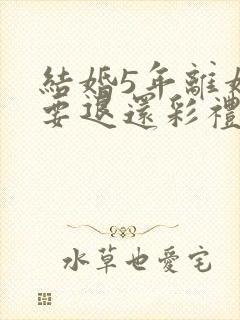 結婚5年離婚
要退還彩禮
水草也愛宅